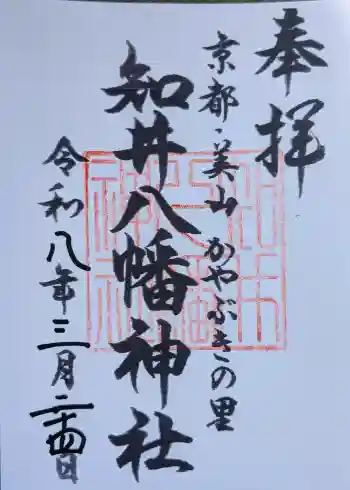 奉拝
京都・美山 かやぶきの里
知井八幡神社
令和八年三月二十四日